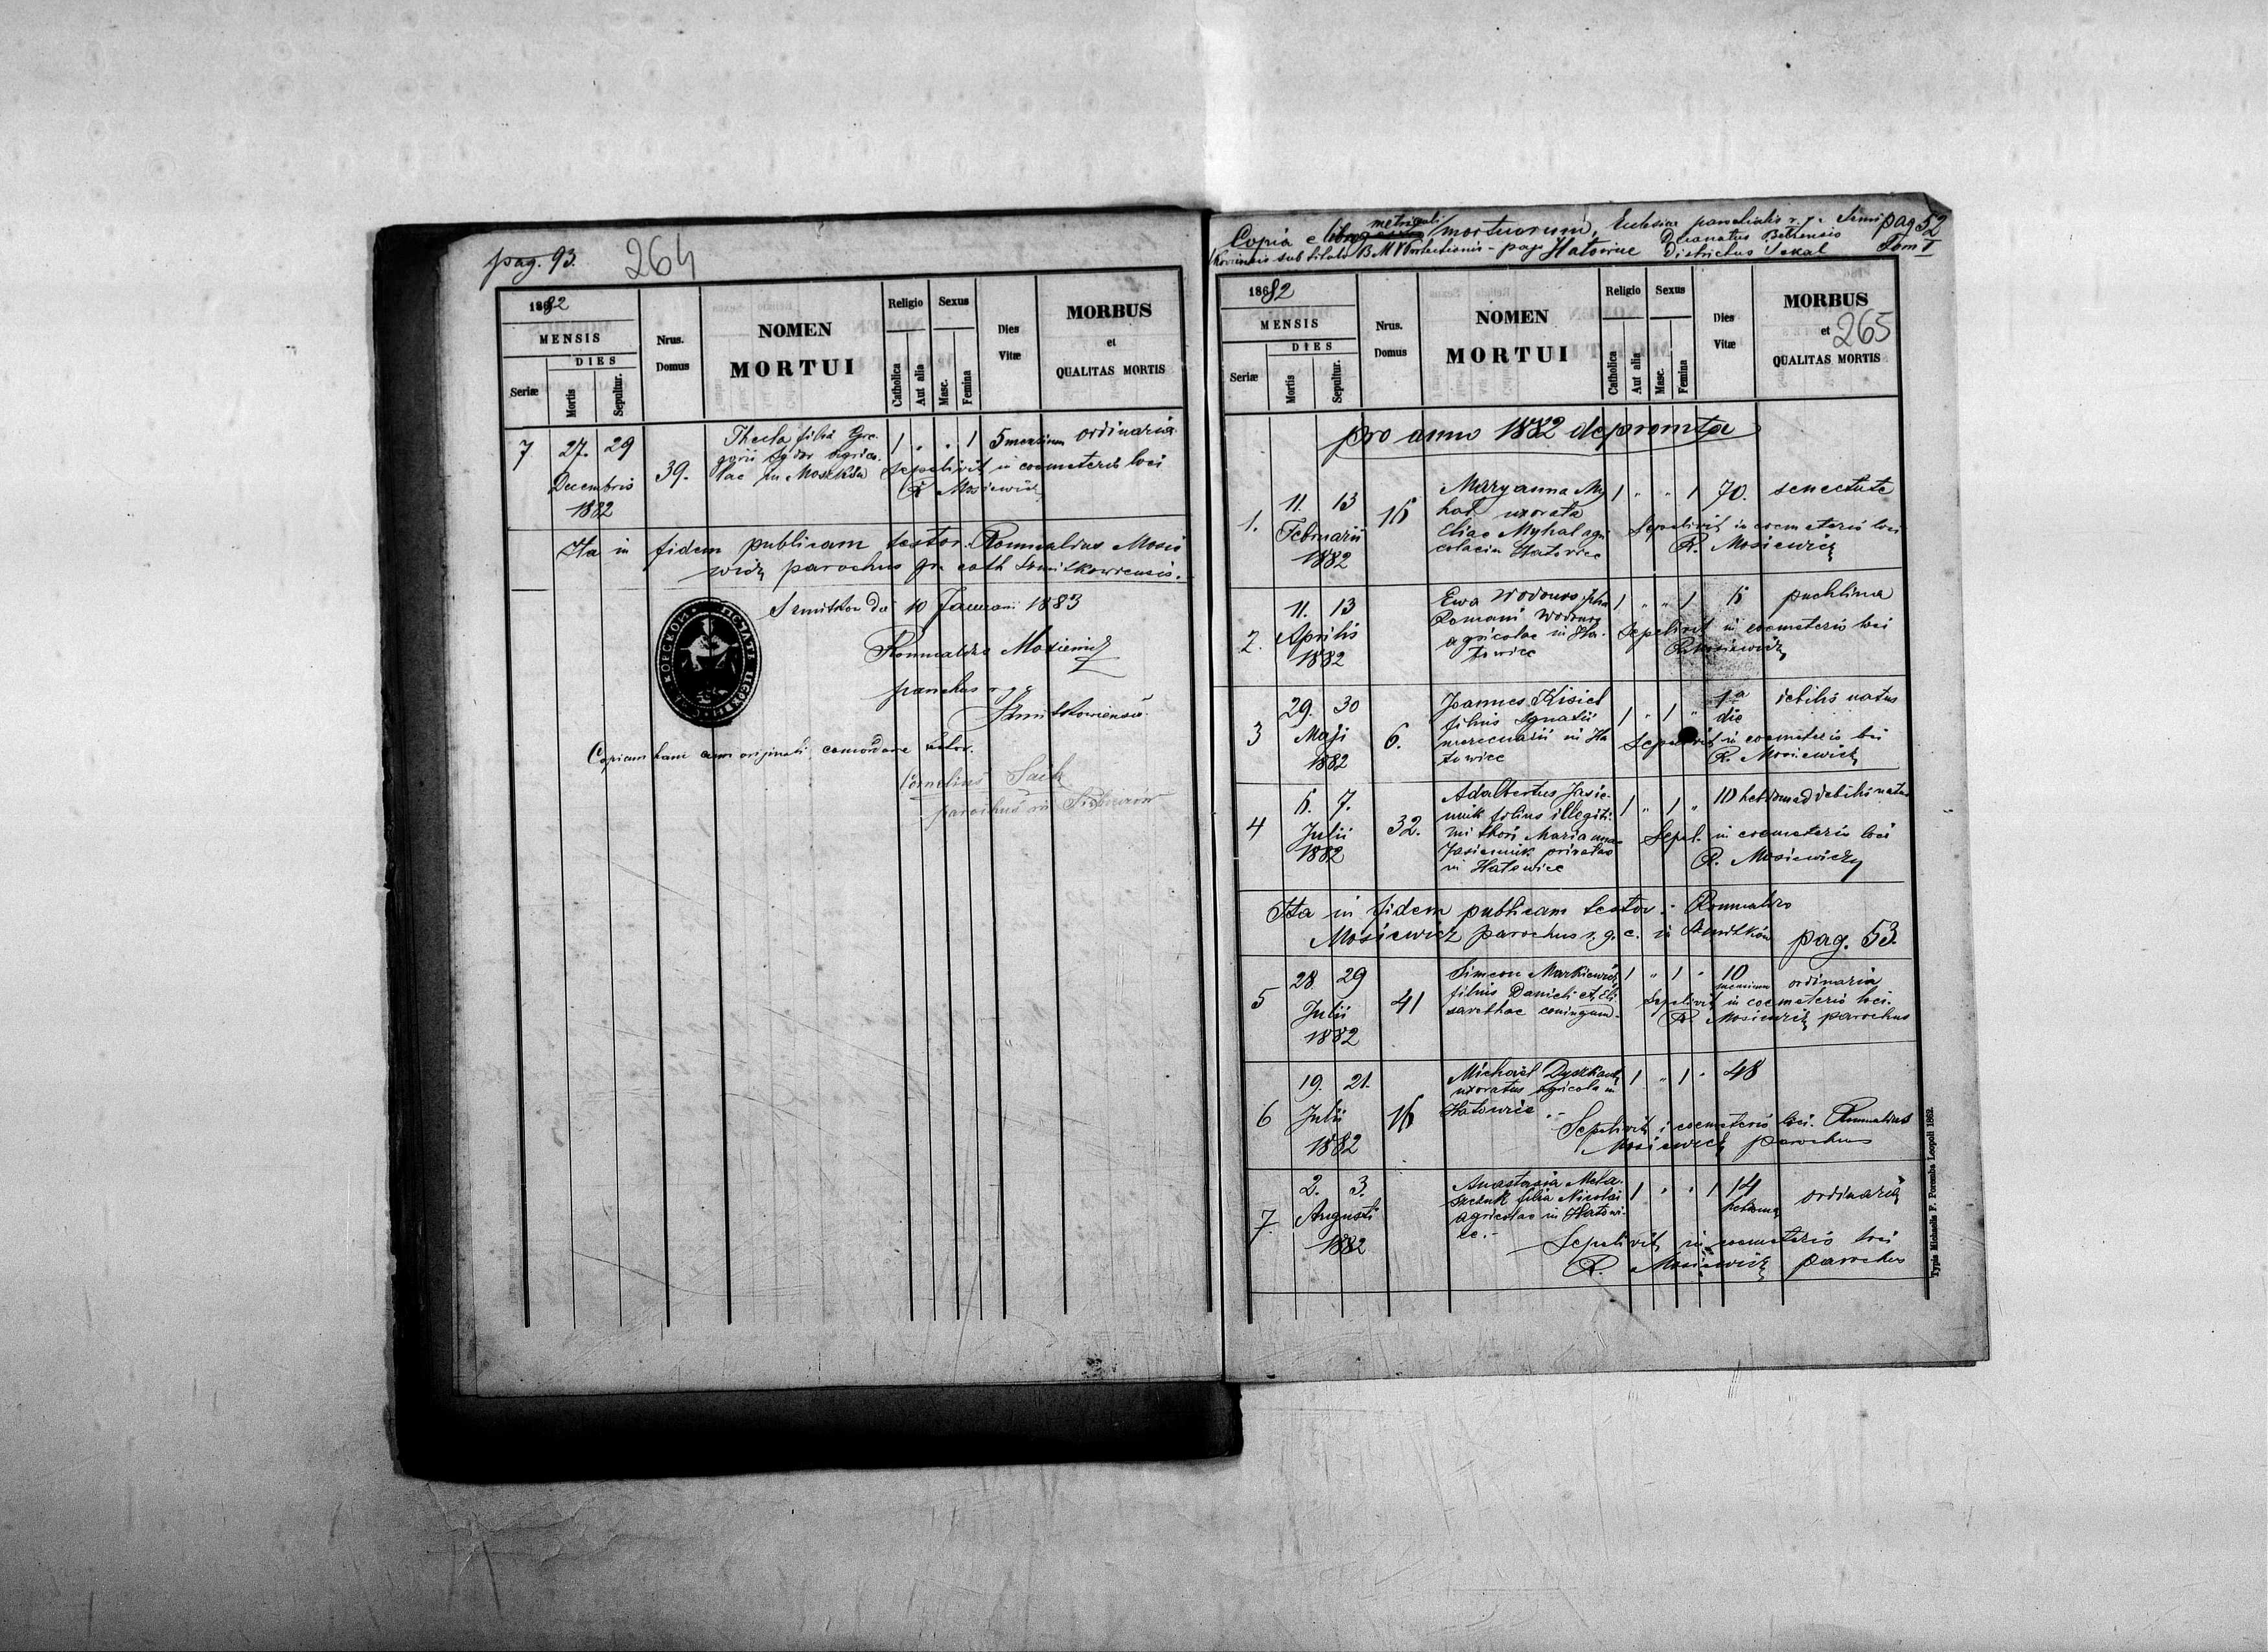 pag. 93.
264
1882
MENSIS
DIES
Seriæ
Mortis
Sepultur.
Nrus.
Domus
NOMEN
MORTUI
Religio
Catholica
Aut alia
Sexus
Masc.
Femina
Dies
Vitæ
MORBUS
et
QUALITAS MORTIS
7 27. 29
Decembris
1882
39.
Thecla filia Gre-
gorii agrico-
lae in Moszków
1 " " 1 5 mensium ordinaria
sepelivit in coemeterio loci
R Mosiewicz
Ita in fidem publicam testor. Romualdus Mosie
wicz parochus gr. cath Szmitkowiensis.
Szmitków die 10 Januarii 1883
Romualdus Mosiewicz
parochus r. g. c.
Szmitkowiensis
Copiam hanc cum originali concordare testor.
Cornelius
parochus in
Copia e libro metricali mortuorum, Ecclesiae parochialis r. g. Szmi pag 52
kowiensis sub titulo B M V Protectionis - pagi Hatowice Decanatus Belzensis Districtus Sokal Tom I
1882
265
MENSIS
DIES
Seriæ
Mortis
Sepultur.
Nrus.
Domus
NOMEN
MORTUI
Religio
Catholica
Aut alia
Sexus
Masc.
Femina
Dies
Vitæ
MORBUS
et
QUALITAS MORTIS
pro anno 1882 depromta
1. 11. 13
Februarii
1882
16
Maryanna My
hal uxorata
Eliae Myhal agri
colae in Hatowice
1 " " 1 70. senectute
Sepelivit in coemeterio loci
R. Mosiewicz
2. 11. 13
Aprilis
1882
Ewa filia
Romani
agricolae in Ha-
towice
1 " " 1 6 puchlina
Sepelivit in coemeterio loci
R Mosiewicz
3 29. 30
Maji
1882
6.
Joannes Kisiel
filius Ignatii
mercenarii in Ha
towice
1 " 1 " 1a die debilis natus
Sepelivit in coemeterio loci
R. Mosiewicz
4 6. 7.
Julii
1882
32.
Adalbertus Jasie-
niuk filius illegiti-
mi thori Marianna
Jasieniuk privatae
in Hatowice
1 " 1 " 10 hebdomad debilis natus
Sepel. in coemeterio loci
R. Mosiewicz
Ita in fidem publicam testor: Romualdus
Mosiewicz parochus r. g. c. in Szmitków
pag. 53.
5 28. 29
Julii
1882
41
Simeon Markiewicz
filius Danieli et Eli
savethae coniugum.
1 " 1 " 10 mensium ordinaria
Sepelivit in coemeterio loci.
R. Mosiewicz parochus
6 19. 21.
Julii
1882
16
Michael
uxoratus agricola in
Hatowice.
1 " 1 " 48
Sepelivit i coemeterio loci. Romualdus
Mosiewicz parochus
7. 2. 3.
Augusti
1882
Anastasia Mela-
szczuk filia Nicolai
agricolae in Hatowi-
ce.-
1 " " 1 14 hebdom ordinaria
Sepelivit in coemeterio loci
R. Mosiewicz parochus
Typis Michaelis F. Poremba Leopoli 1862.